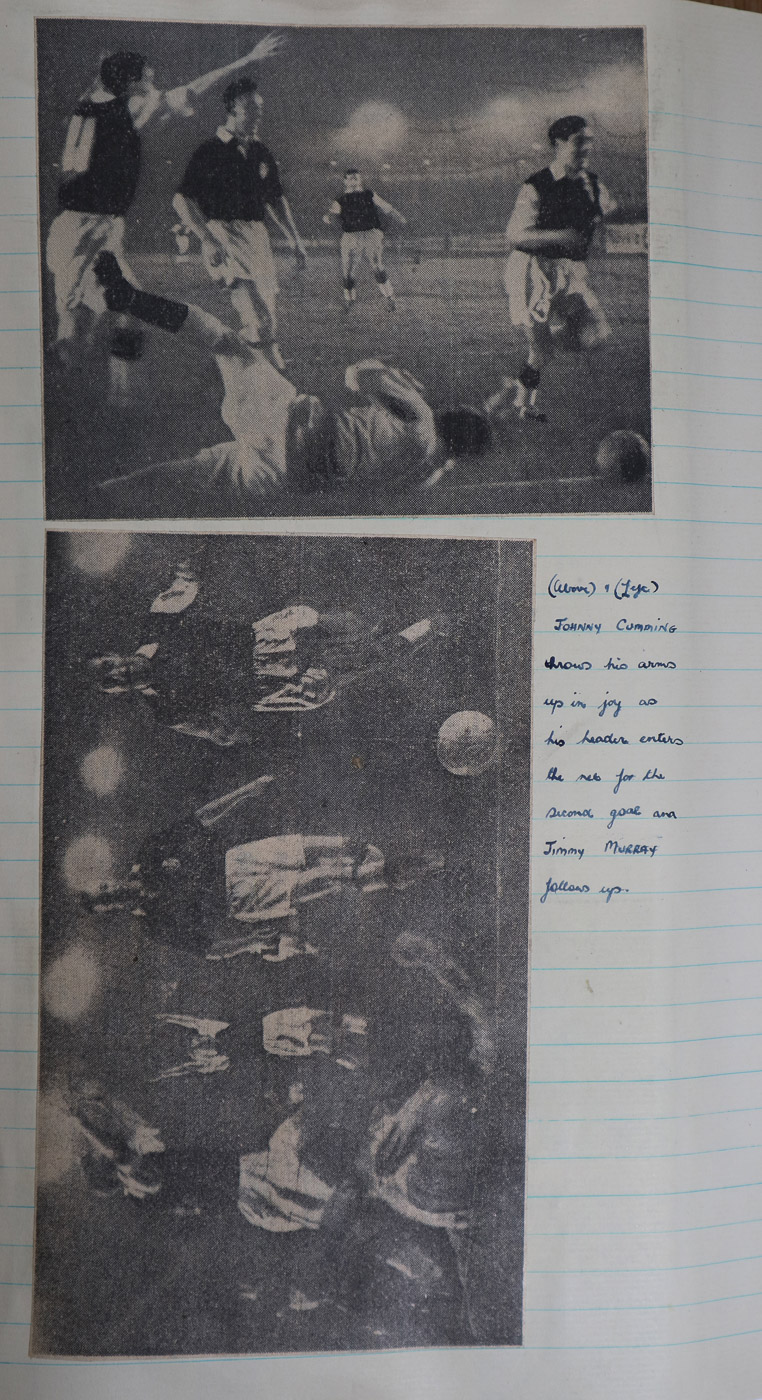 (Above) & (Left)
JOHNNY CUMMING
throws his arms
up in joy as
his header enters
the net for the
second goal and
Jimmy MURRAY
follows up.
11